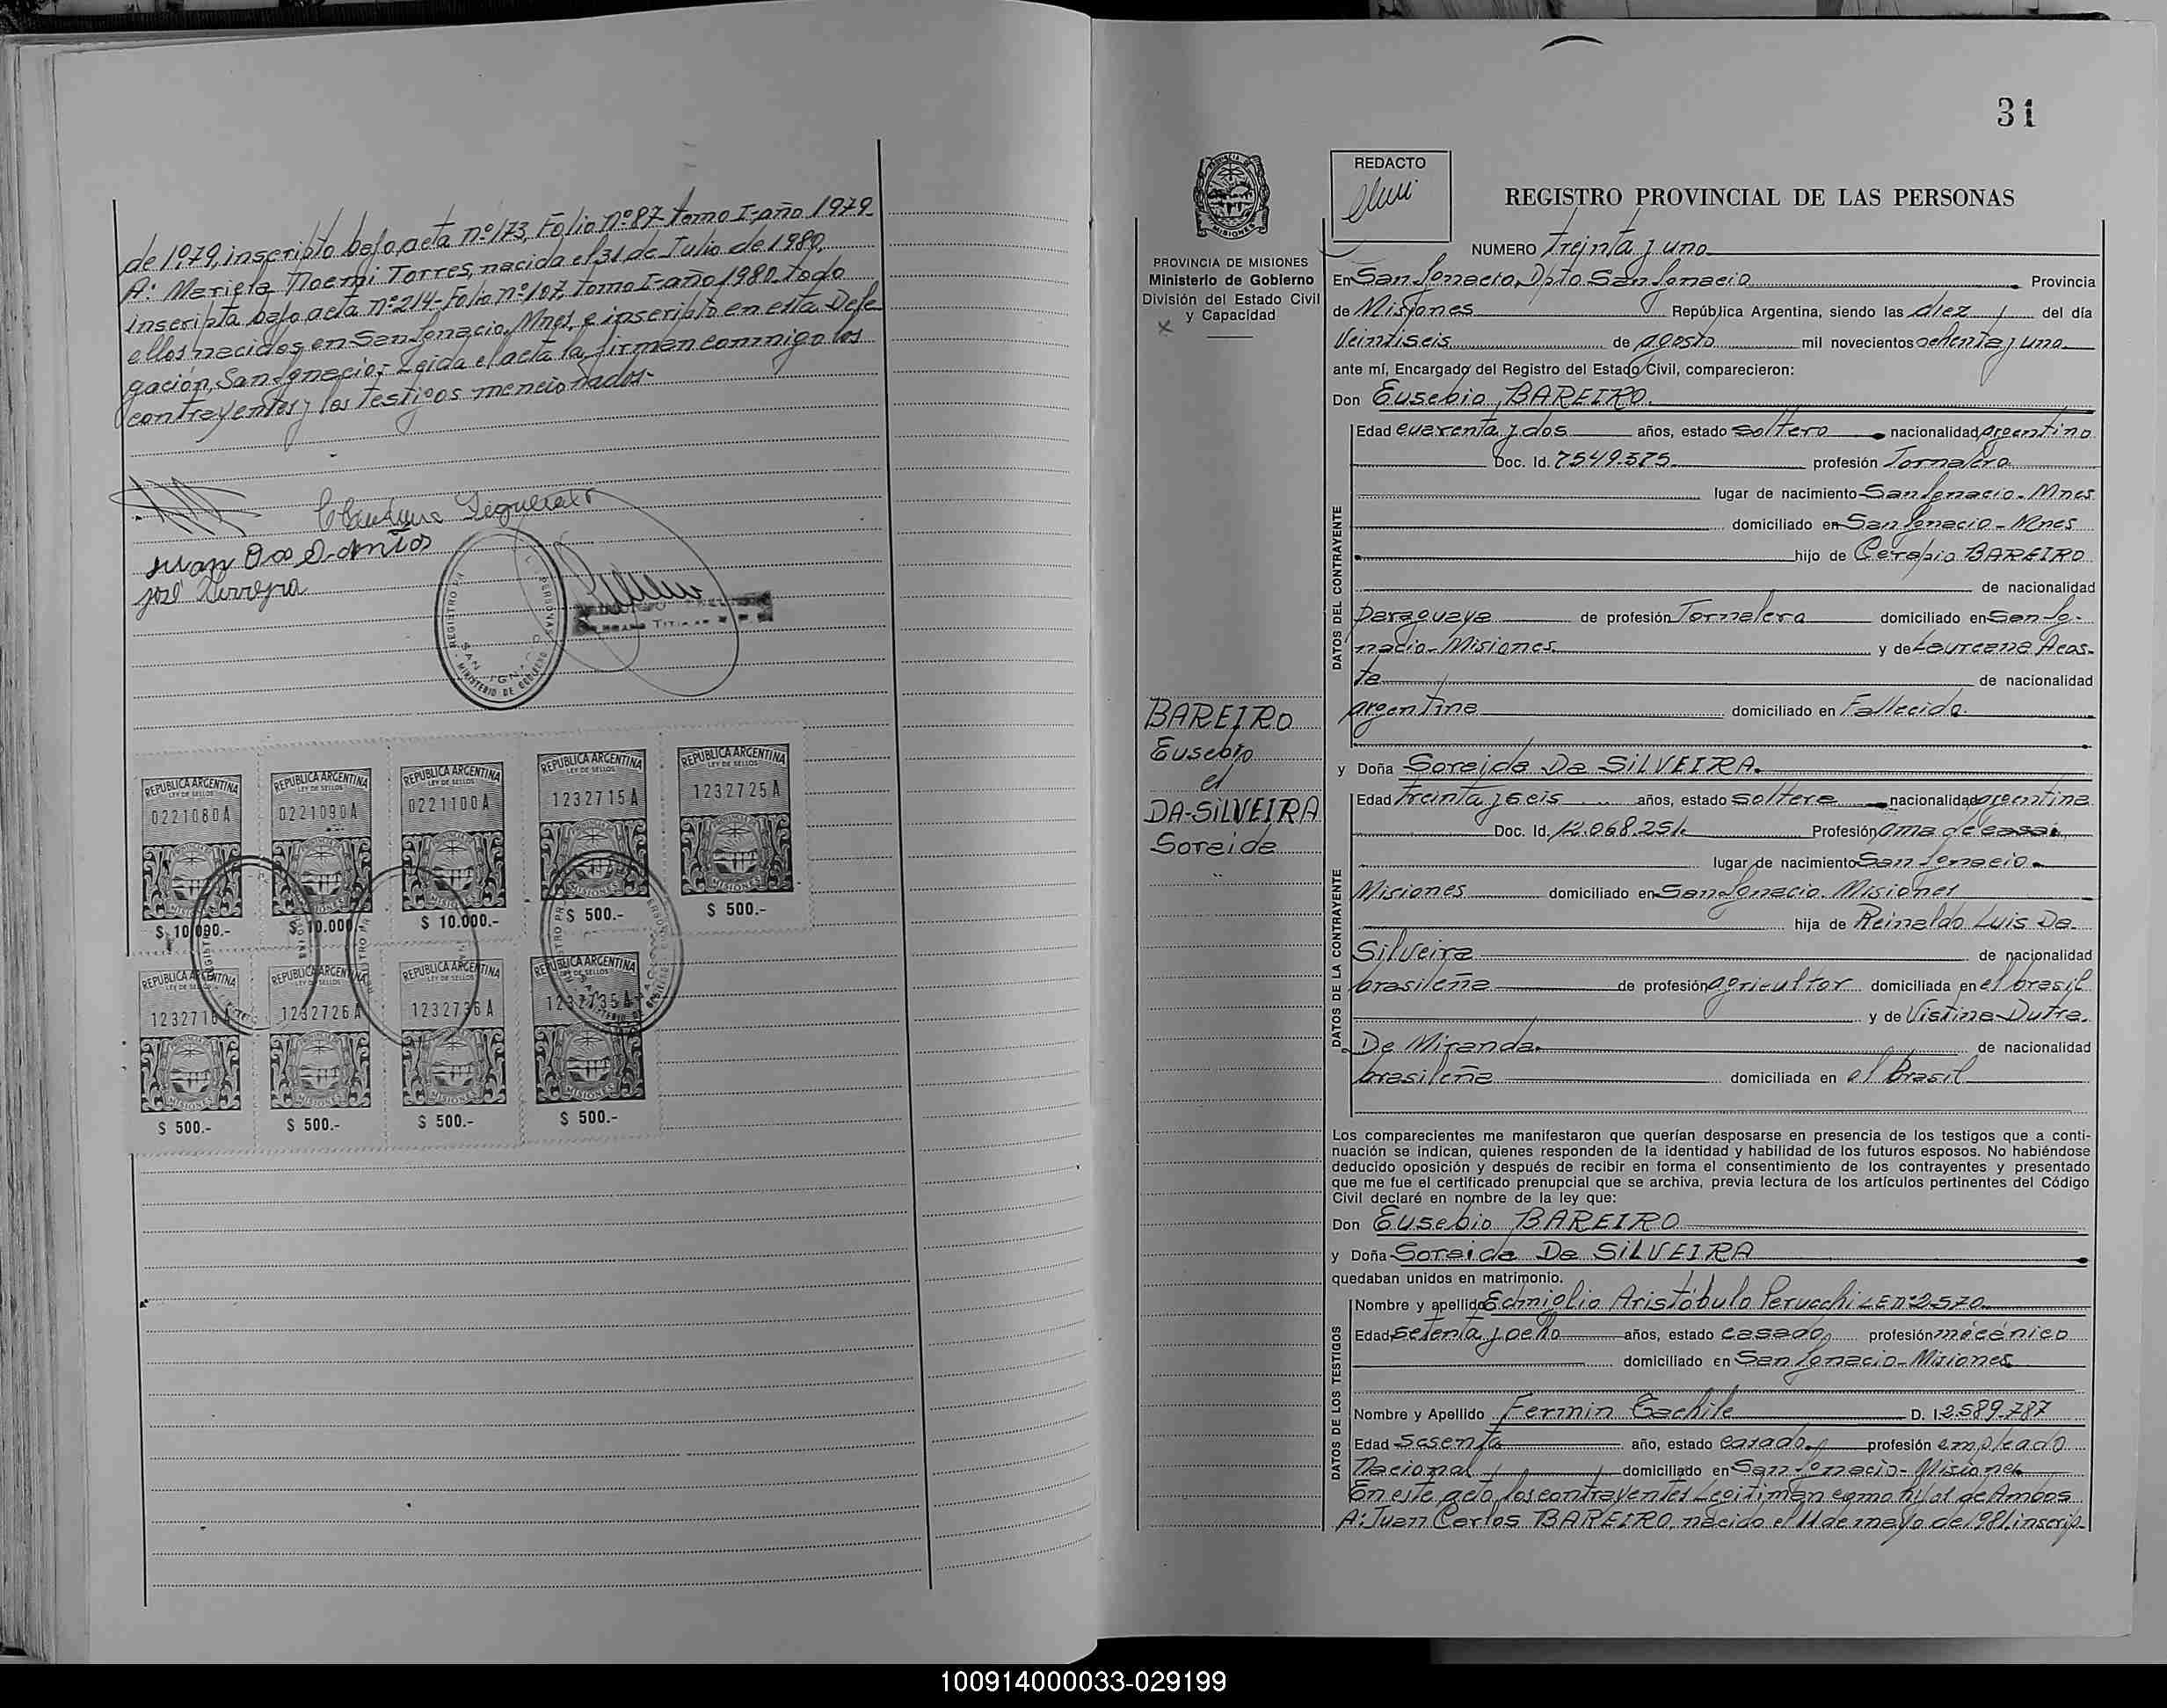 de 1979, inscripto bajo acta nº 173, Folio nº 87 tomo I-año 1979-
A: Mariela Noemi Torres, nacida el 31 de Julio de 1980,
inscripta bajo acta nº 214-Folio nº 107, tomo I-año 1980-todo
ellos nacidos en San Ignacio, Mnes, e inscripto en esta Dele
gación, San Ignacio;- Leida el acta la firman conmigo los
contrayentes y los testigos mencionados-
José Ferreyra
REPUBLICA ARGENTINA
LEY DE SELLOS
0221080A
MISIONES
$ 10.000.-
REPUBLICA ARGENTINA
LEY DE SELLOS
0221090A
MISIONES
$ 10.000.-
REPUBLICA ARGENTINA
LEY DE SELLOS
0221100A
MISIONES
$ 10.000.-
REPUBLICA ARGENTINA
LEY DE SELLOS
1232715A
MISIONES
$ 500.-
REPUBLICA ARGENTINA
LEY DE SELLOS
1232725A
MISIONES
$ 500.-
REPUBLICA ARGENTINA
LEY DE SELLOS
1232716A
MISIONES
$ 500.-
REPUBLICA ARGENTINA
LEY DE SELLOS
1232726A
MISIONES
$ 500.-
REPUBLICA ARGENTINA
LEY DE SELLOS
1232736A
MISIONES
$ 500.-
REPUBLICA ARGENTINA
LEY DE SELLOS
1232735A
MISIONES
$ 500.-
31
PROVINCIA DE MISIONES
Ministerio de Gobierno
División del Estado Civil
y Capacidad
BAREIRO
Eusebio
el
DA-SILVEIRA
Soreida
REDACTO
REGISTRO PROVINCIAL DE LAS PERSONAS
NUMERO Treinta y uno
En San Ignacio, Dpto San Ignacio Provincia
de Misiones República Argentina, siendo las diez del día
Veintiseis de agosto mil novecientos ochenta y uno
ante mí, Encargado del Registro del Estado Civil, comparecieron:
Don Eusebio BAREIRO.
DATOS DEL CONTRAYENTE
Edad cuarenta y dos años, estado soltero nacionalidad argentino
Doc. Id. 7.549.575 profesión Jornalero
lugar de nacimiento San Ignacio-Mnes
domiciliado en San Ignacio-Mnes
hijo de Cerapio BAREIRO
de nacionalidad
paraguaya de profesión Jornalero domiciliado en San Ig-
nacio-Misiones y de Laureana Acos-
ta de nacionalidad
argentina domiciliado en Fallecida.
y Doña Soreida Da SILVEIRA.
DATOS DE LA CONTRAYENTE
Edad treinta y seis años, estado soltera nacionalidad argentina
Doc. Id. 12.068.251. Profesión ama de casa
lugar de nacimiento San Ignacio
Misiones domiciliado en San Ignacio Misiones
hija de Reinaldo Luis Da.
Silveira de nacionalidad
brasileña de profesión agricultor domiciliada en el brasil
y de Vistina Dutra.
De Miranda. de nacionalidad
brasileña domiciliada en el Brasil
Los comparecientes me manifestaron que querían desposarse en presencia de los testigos que a conti-
nuación se indican, quienes responden de la identidad y habilidad de los futuros esposos. No habiéndose
deducido oposición y después de recibir en forma el consentimiento de los contrayentes y presentado
que me fue el certificado prenupcial que se archiva, previa lectura de los artículos pertinentes del Código
Civil declaré en nombre de la ley que:
Don Eusebio BAREIRO
y Doña Soreida Da SILVEIRA
quedaban unidos en matrimonio.
DATOS DE LOS TESTIGOS
Nombre y apellido Edmiglio Aristóbulo Perucchi LE nº 2-570
Edad setenta y ocho años, estado casado, profesión mécánico
domiciliado en San Ignacio-Misiones
Nombre y Apellido Fermin Cachile D. I. 2.589.787
Edad Sesenta año, estado casado profesión empleado
Nacional domiciliado en San Ignacio-Misiones
En este acto los contrayentes Legitiman como hijos de Ambos
A: Juan Carlos BAREIRO, nacido el 11 de mayo de 1981, inscrip-
100914000033-029199